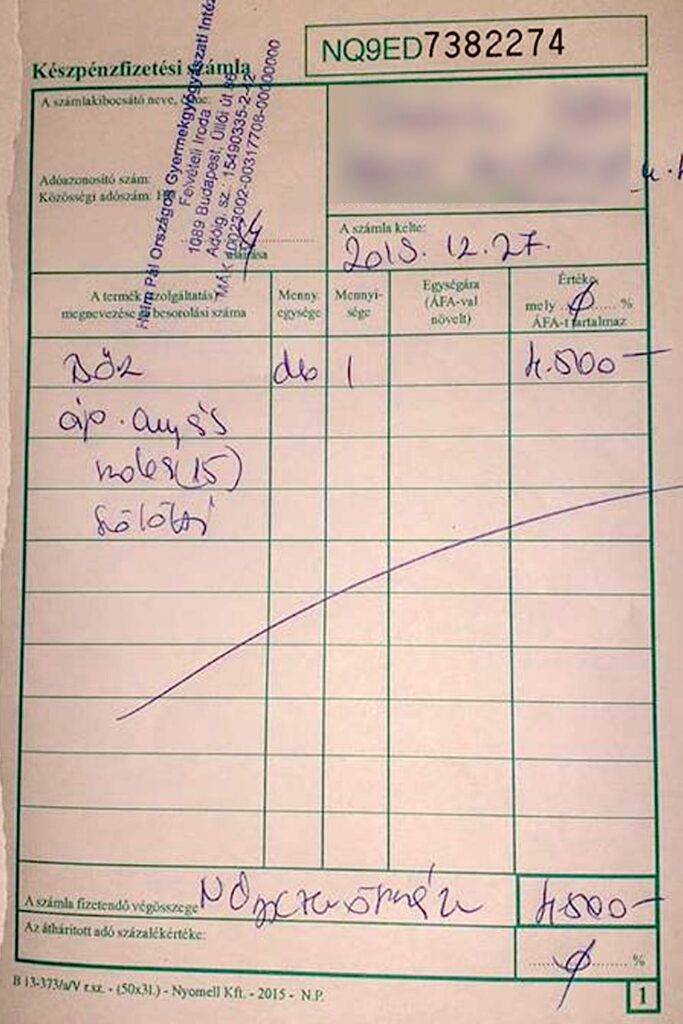 Készpénzfizetési számla
NQ9ED7382274
A számlakibocsátó neve,
Adóazonosító szám:
Közösségi adószám:
Heim Pál Országos Gyermekgyógyászati Inté
Felvételi Iroda
1089 Budapest, Üllői út 86
Adóig. sz.: 15490335-2-42
MÁK 10023002-00317708-00000000
aláírása
A számla kelte:
2015. 12. 27.
A termék (szolgáltatás)
megnevezése és besorolási száma
Menny.
egysége
Mennyi-
sége
Egységára
(ÁFA-val
növelt)
Értéke,
mely ..0.. %
ÁFA-t tartalmaz
db 1 4.500-
áp.
(15)
A számla fizetendő végösszege 4.500-
Az áthárított adó százalékértéke:
0 %
B 13-373/a/V r.sz. - (50x3l.) - Nyomell Kft. - 2015 - N.P.
1